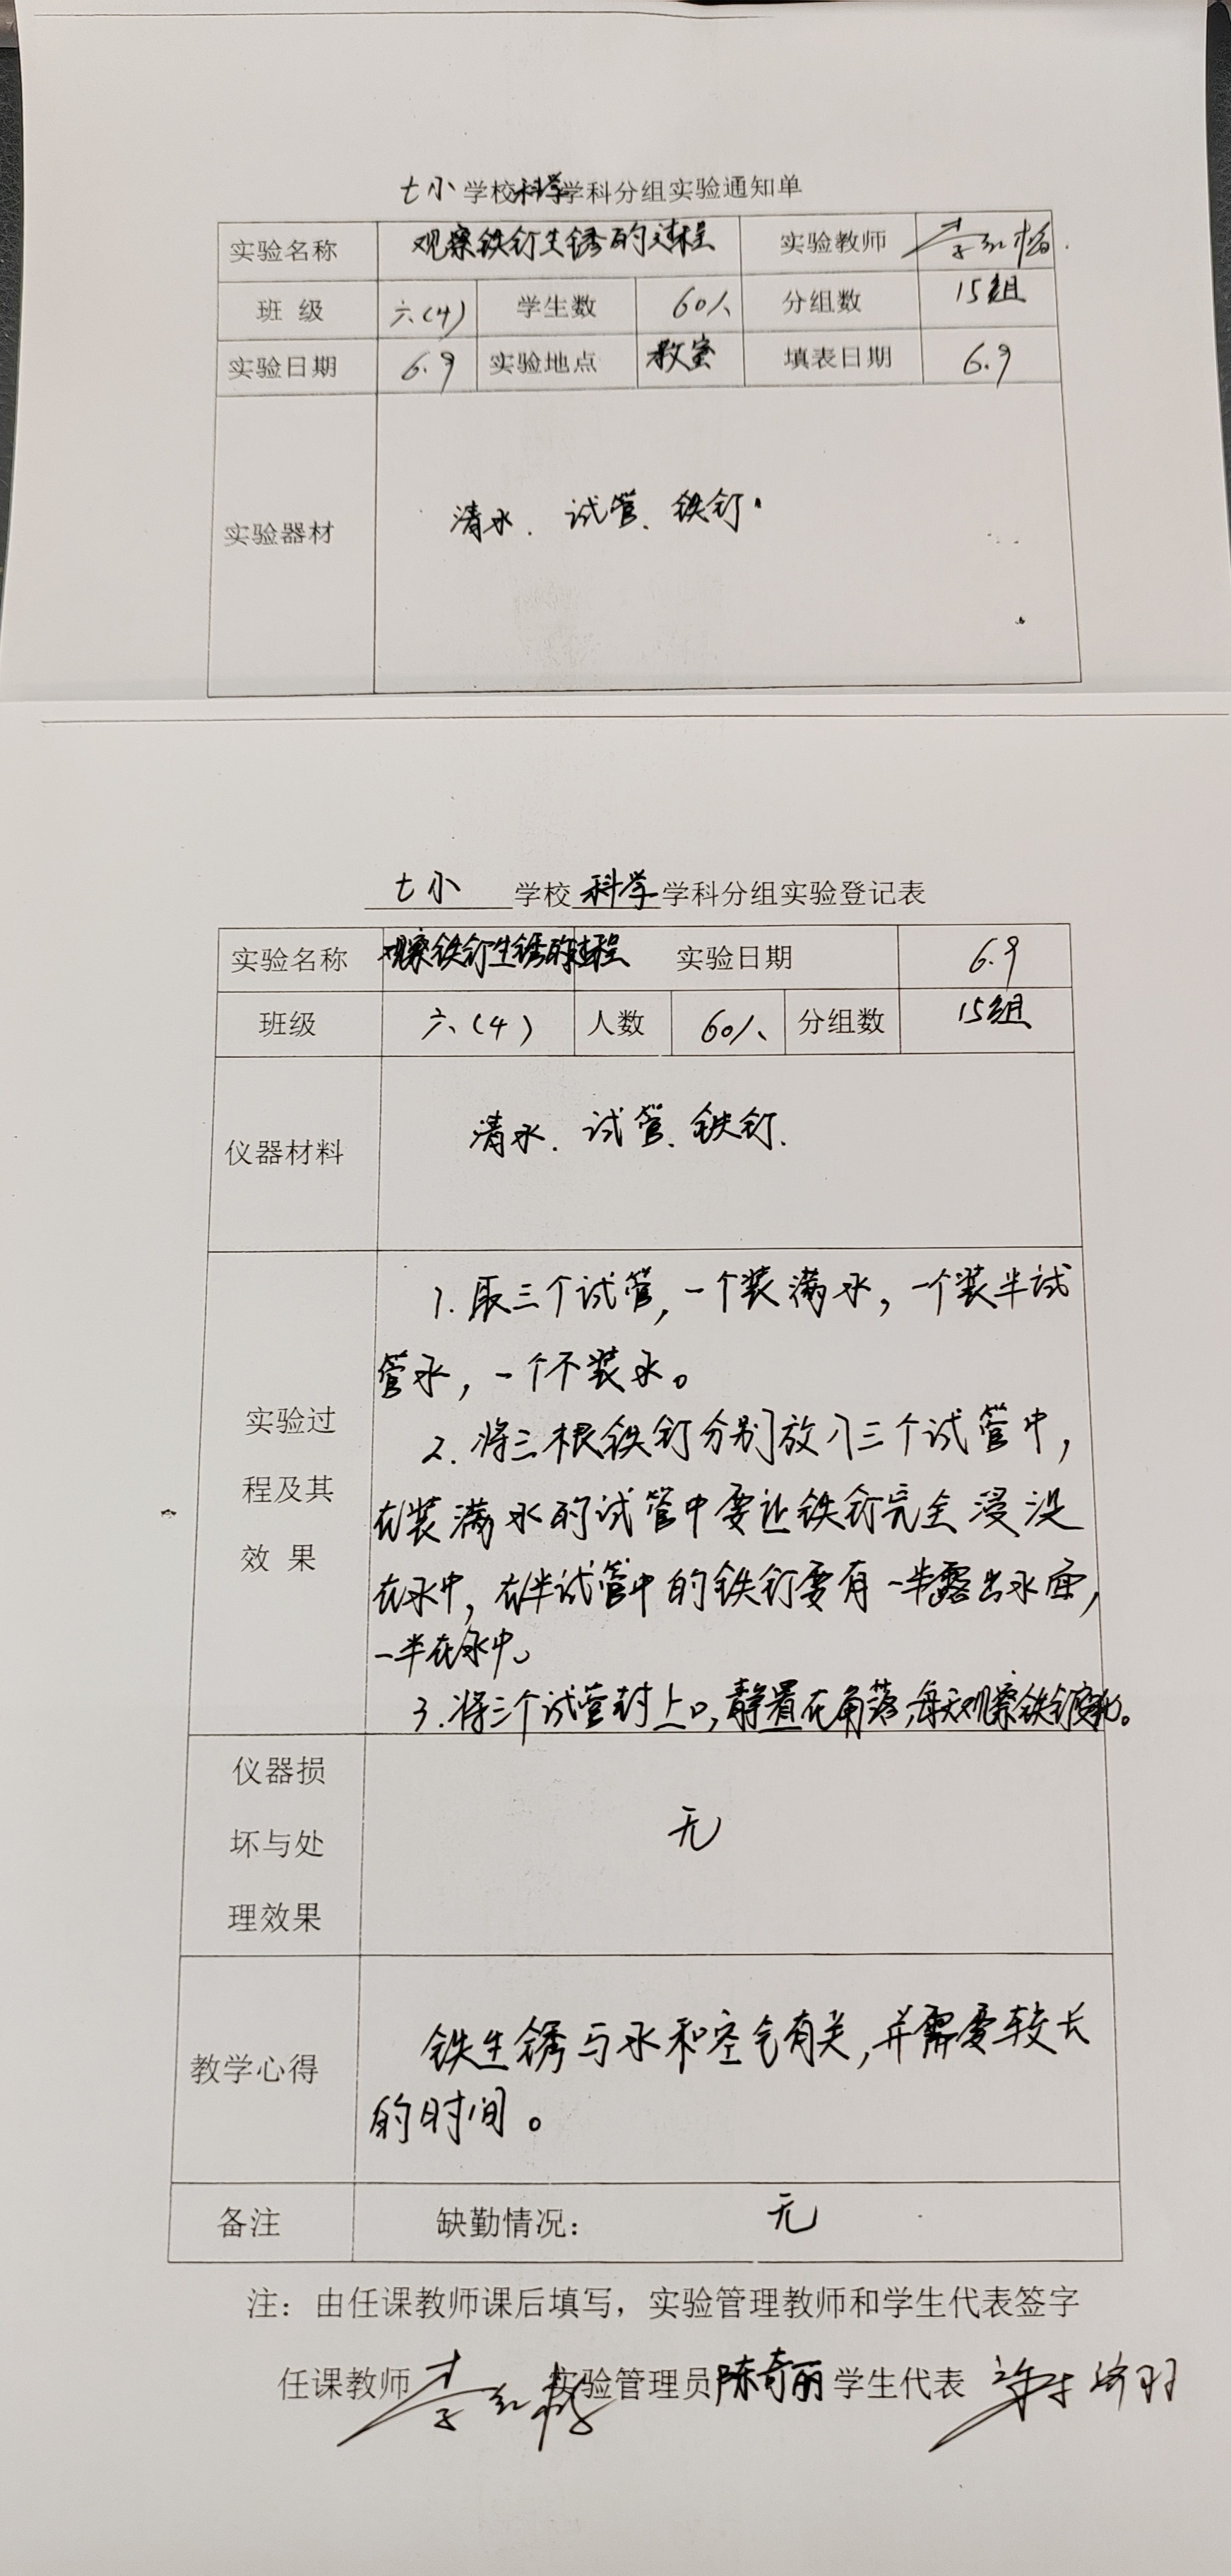 七小学校科学学科分组实验通知单
实验名称 观察铁钉生锈的过程 实验教师 李红梅
班 级 六(4) 学生数 60人 分组数 15组
实验日期 6.9 实验地点 教室 填表日期 6.9
实验器材 清水、试管、铁钉。
七小 学校 科学 学科分组实验登记表
实验名称 观察铁钉生锈的过程 实验日期 6.9
班级 六(4) 人数 60人 分组数 15组
仪器材料 清水、试管、铁钉、
1. 取三个试管,一个装满水,一个装半试
管水,一个不装水。
实验过
程及其
效 果
2. 将三根铁钉分别放入三个试管中,
在装满水的试管中要让铁钉完全浸没
在水中,在半试管中的铁钉要有一半露出水面,
一半在水中。
3. 将三个试管封上口,静置在角落,每天观察铁钉变化。
仪器损
坏与处
理效果
无
教学心得
铁生锈与水和空气有关,并需要较长
的时间。
备注 缺勤情况: 无
注:由任课教师课后填写,实验管理教师和学生代表签字
任课教师 李红梅 实验管理员 陈奇丽 学生代表